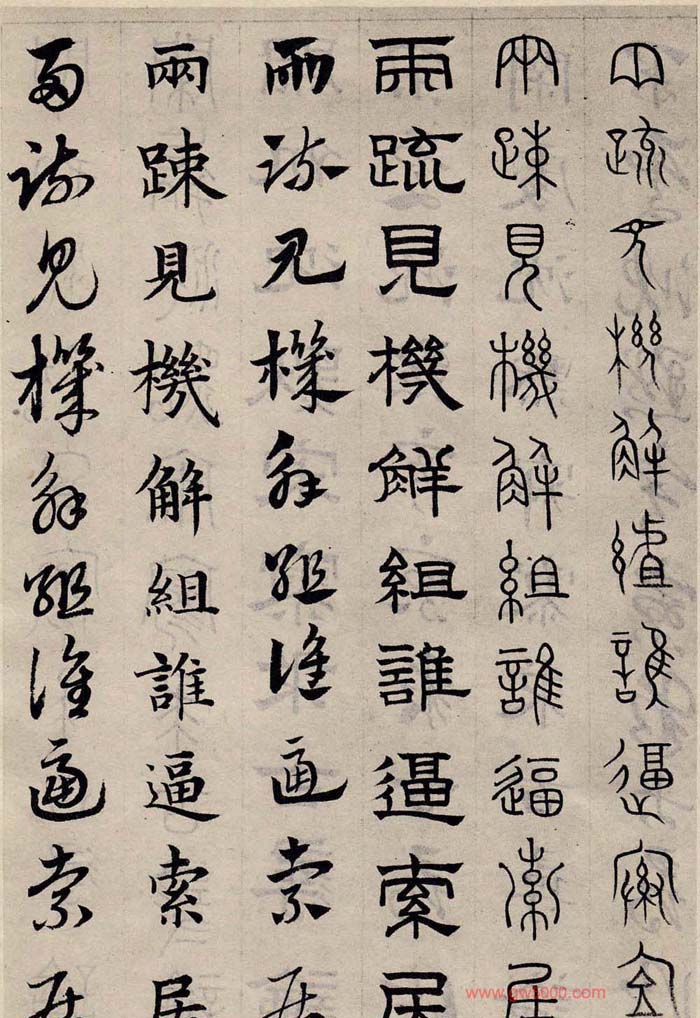 兩疏見機解組誰逼索居
兩疎見機解組誰逼索居
兩疏見機解組誰逼索居
兩疎見機解組誰逼索居
兩疎見機解組誰逼索居
兩疎見機解組誰逼索居
www.gw8000.com